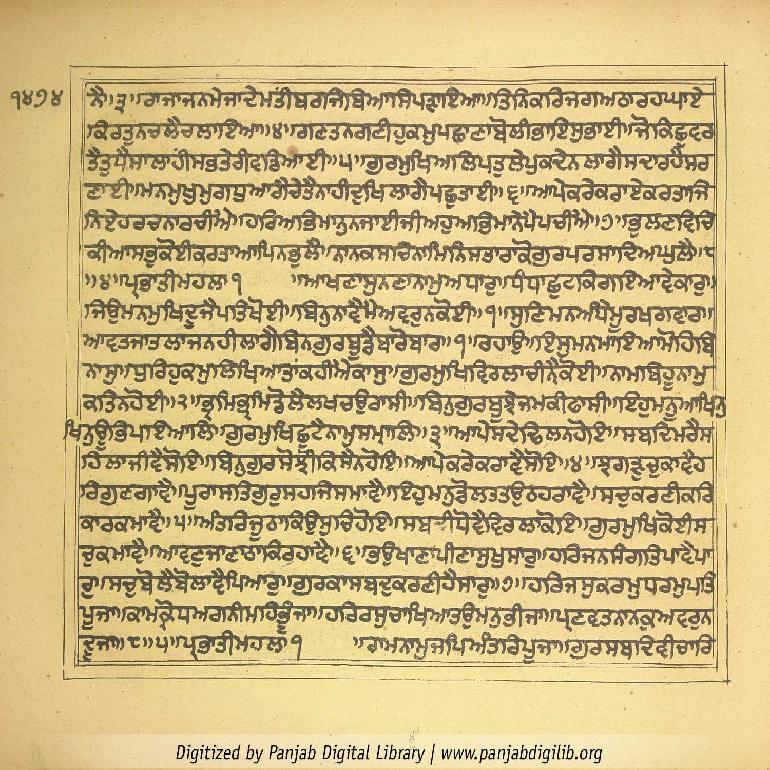 ੧੪੭੪
ਨੈ॥੩॥ਰਾਜਾਜਨਮੇਜਾਦੇਮਤੀਬਰਜਿਬਿਆਸਿਪੜਾਇਆ॥ਤਿਨਿਕਰਿਜਗਅਠਾਰਹਘਾਏ
ਕਿਰਤੁਨਚਲੈਚਲਾਇਆ॥੪॥ਗਣਤਨਗਣੀਹੁਕਮੁਪਛਾਣਾਬੋਲੀਭਾਇਸੁਭਾਈ॥ਜੋਕਿਛੁਵਰ
ਤੈਤੁਧੈਸਾਲਾਹੀਸਭਤੇਰੀਵਡਿਆਈ॥੫॥ਗੁਰਮੁਖਿਅਲਿਪਤੁਲੇਪੁਕਦੇਨਲਾਗੈਸਦਾਰਹੈਸਰ
ਣਾਈ॥ਮਨਮੁਖੁਮੁਗਧੁਆਗੈਚੇਤੈਨਾਹੀਦੁਖਿਲਾਗੈਪਛੁਤਾਈ॥੬॥ਆਪੇਕਰੇਕਰਾਏਕਰਤਾਜਿ
ਨਿਏਹਰਚਨਾਰਚੀਐ॥ਹਰਿਅਭਿਮਾਨੁਨਜਾਈਜੀਅਹੁਅਭਿਮਾਨੇਪੈਪਚੀਐ॥੭॥ਭੁਲਣਵਿਚਿ
ਕੀਆਸਭੁਕੋਈਕਰਤਾਆਪਿਨਭੁਲੈ॥ਨਾਨਕਸਚਿਨਾਮਿਨਿਸਤਾਰਾਕੋਗੁਰਪਰਸਾਦਿਅਘੁਲੈ॥੮
॥੪॥ਪ੍ਰਭਾਤੀਮਹਲਾ੧ ॥ਆਖਣਾਸੁਨਣਾਨਾਮੁਅਧਾਰੁ॥ਧੰਧਾਛੁਟਕਿਗਇਆਵੇਕਾਰੁ॥
ਜਿਉਮਨਮੁਖਿਦੂਜੈਪਤਿਖੋਈ॥ਬਿਨੁਨਾਵੈਮੈਅਵਰੁਨਕੋਈ॥੧॥ਸੁਣਿਮਨਅੰਧੇਮੂਰਖਗਵਾਰ॥
ਆਵਤਜਾਤਲਾਜਨਹੀਲਾਗੈਬਿਨੁਗੁਰਬੂਡੈਬਾਰੋਬਾਰ॥੧॥ਰਹਾਉ॥ਇਸੁਮਨਮਾਇਆਮੋਹਿਬਿ
ਨਾਸੁ॥ਧੁਰਿਹੁਕਮੁਲਿਖਿਆਤਾਂਕਹੀਐਕਾਸੁ॥ਗੁਰਮੁਖਿਵਿਰਲਾਚੀਨੈਕੋਈ॥ਨਾਮਬਿਹੂਨਾਮੁ
ਕਤਿਨਹੋਈ॥੨॥ਭ੍ਰਮਿਭ੍ਰਮਿਡੋਲੈਲਖਚਉਰਾਸੀ॥ਬਿਨੁਗੁਰਬੂਝੇਜਮਕੀਫਾਸੀ॥ਇਹੁਮਨੂਆਖਿਨੁ
ਖਿਨੁਊਭਿਪਇਆਲਿ॥ਗੁਰਮੁਖਿਛੂਟੈਨਾਮੁਸਮ੍ਹਾਲਿ॥੩॥ਆਪੇਸਦੇਢਿਲਨਹੋਇ॥ਸਬਦਿਮਰੈਸ
ਹਿਲਾਜੀਵੈਸੋਇ॥ਬਿਨੁਗੁਰਸੋਝੀਕਿਸੈਨਹੋਇ॥ਆਪੇਕਰੇਕਰਾਵੈਸੋਇ॥੪॥ਝਗੜੁਚੁਕਾਵੈਹ
ਰਿਗੁਣਗਾਵੈ॥ਪੂਰਾਸਤਿਗੁਰੁਸਹਜਿਸਮਾਵੈ॥ਇਹੁਮਨੁਡੋਲਤਤਉਠਹਰਾਵੈ॥ਸਚੁਕਰਣੀਕਰਿ
ਕਾਰਕਮਾਵੈ॥੫॥ਅੰਤਰਿਜੂਠਾਕਿਉਸੁਚਿਹੋਇ॥ਸਬਦੀਧੋਵੈਵਿਰਲਾਕੋਇ॥ਗੁਰਮੁਖਿਕੋਈਸ
ਚੁਕਮਾਵੈ॥ਆਵਣੁਜਾਣਾਠਾਕਿਰਹਾਵੈ॥੬॥ਭਉਖਾਣਾਪੀਣਾਸੁਖੁਸਾਰੁ॥ਹਰਿਜਨਸੰਗਤਿਪਾਵੈਪਾ
ਰੁ॥ਸਚੁਬੋਲੈਬੋਲਾਵੈਪਿਆਰੁ॥ਗੁਰਕਾਸਬਦੁਕਰਣੀਹੈਸਾਰੁ॥੭॥ਹਰਿਜਸੁਕਰਮੁਧਰਮੁਪਤਿ
ਪੂਜਾ॥ਕਾਮਕ੍ਰੋਧਅਗਨੀਮਹਿਭੂੰਜਾ॥ਹਰਿਰਸੁਚਾਖਿਆਤਉਮਨੁਭੀਜਾ॥ਪ੍ਰਣਵਤਨਾਨਕੁਅਵਰੁਨ
ਦੂਜਾ॥੮॥੫॥ਪ੍ਰਭਾਤੀਮਹਲਾ੧ ॥ਰਾਮਨਾਮੁਜਪਿਅੰਤਰਿਪੂਜਾ॥ਗੁਰਸਬਦਿਵੀਚਾਰਿ
Digitized by Panjab Digital Library | www.panjabdigilib.org